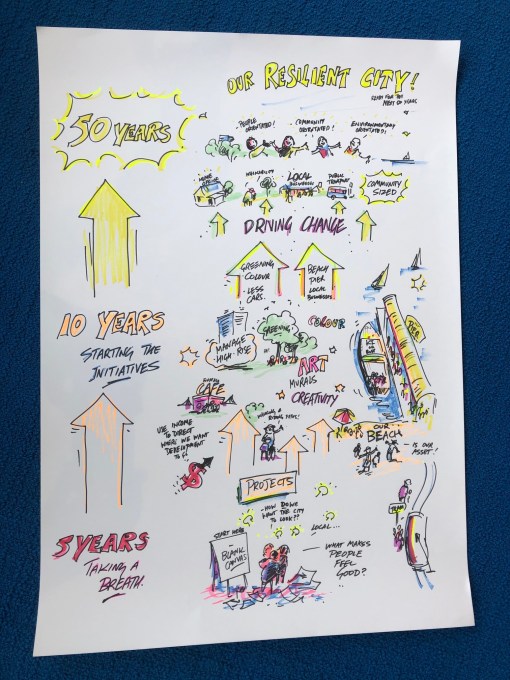 OUR RESILIENT CITY!
50 YEARS
PEOPLE
ORIENTATED!
COMMUNITY
ORIENTATED!
ENVIRONMENTALLY
ORIENTATED!
LOCAL
BUSINESSES
PUBLIC
TRANSPORT
COMMUNITY
SIZED
DRIVING CHANGE
GREENING
COLOUR
- LESS
CARS.
BEACH
PIER
LOCAL
BUSINESSES
10 YEARS
STARTING THE
INITIATIVES
MANAGE
HIGH-RISE
GREENING
COLOUR
ART
MURALS
CREATIVITY
PIER
CAFE
WALKING &
RIDING MORE!
USE INCOME
TO DIRECT
WHERE WE WANT
DEVELOPMENT
TO
$
OUR
BEACH
- IS OUR
ASSET!
PROJECTS
- HOW DO WE
WANT THE CITY
TO LOOK??
TRAM
START HERE
BLANK
CANVAS
LOCAL...
- WHAT MAKES
PEOPLE
FEEL
GOOD?
5 YEARS
TAKING A
BREATH.